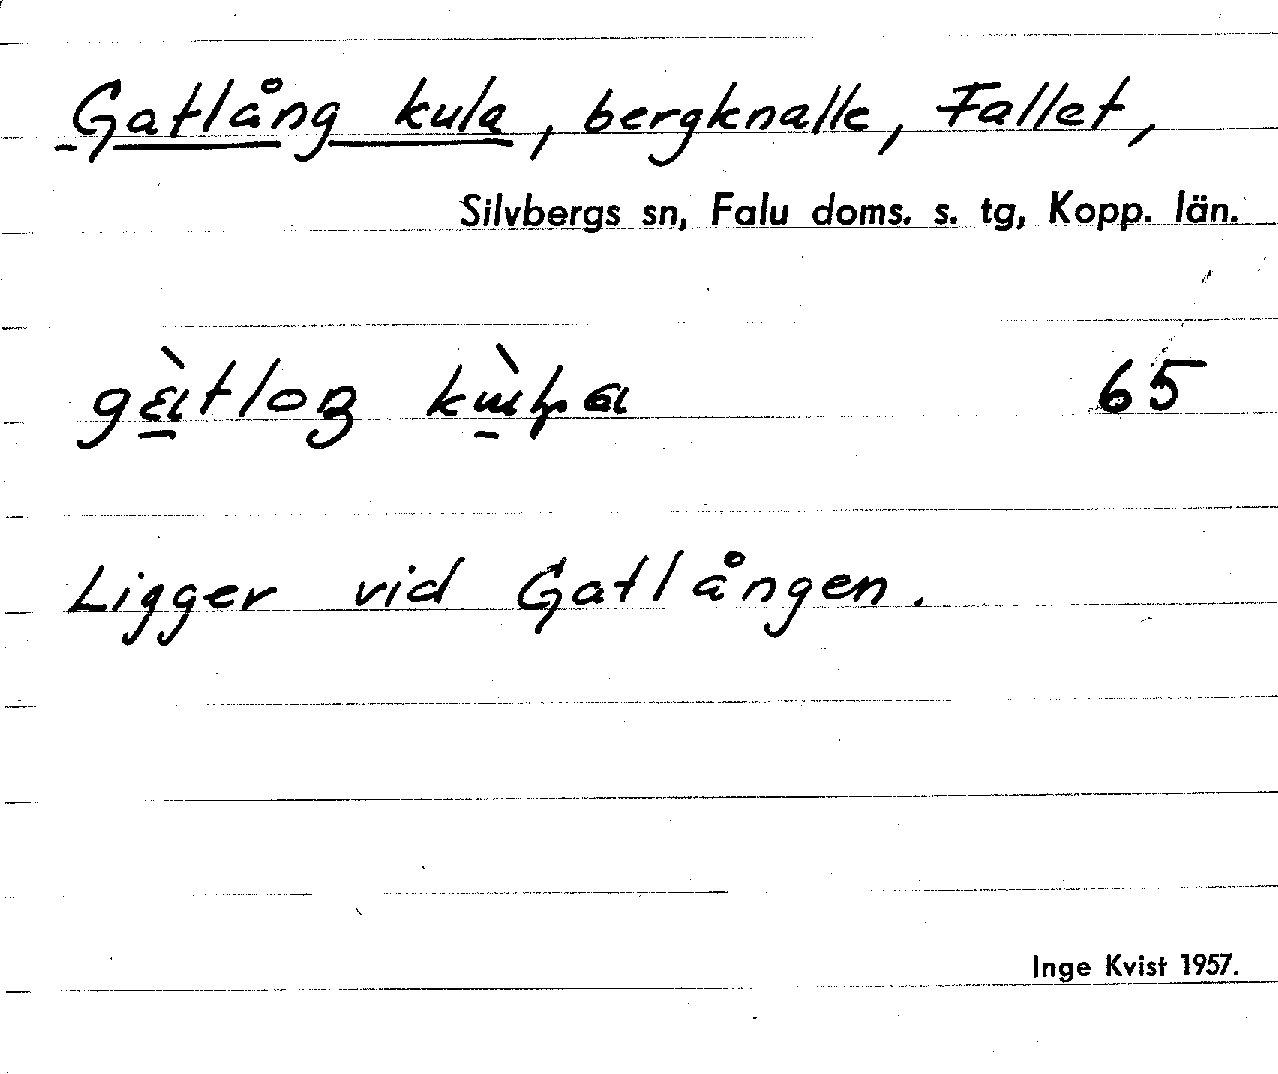 Gatlång kula, bergknalle, Fallet,
Silvbergs sn, Falu doms. s. tg, Kopp. län.
65
Ligger vid Gatlången.
Inge Kvist 1957.